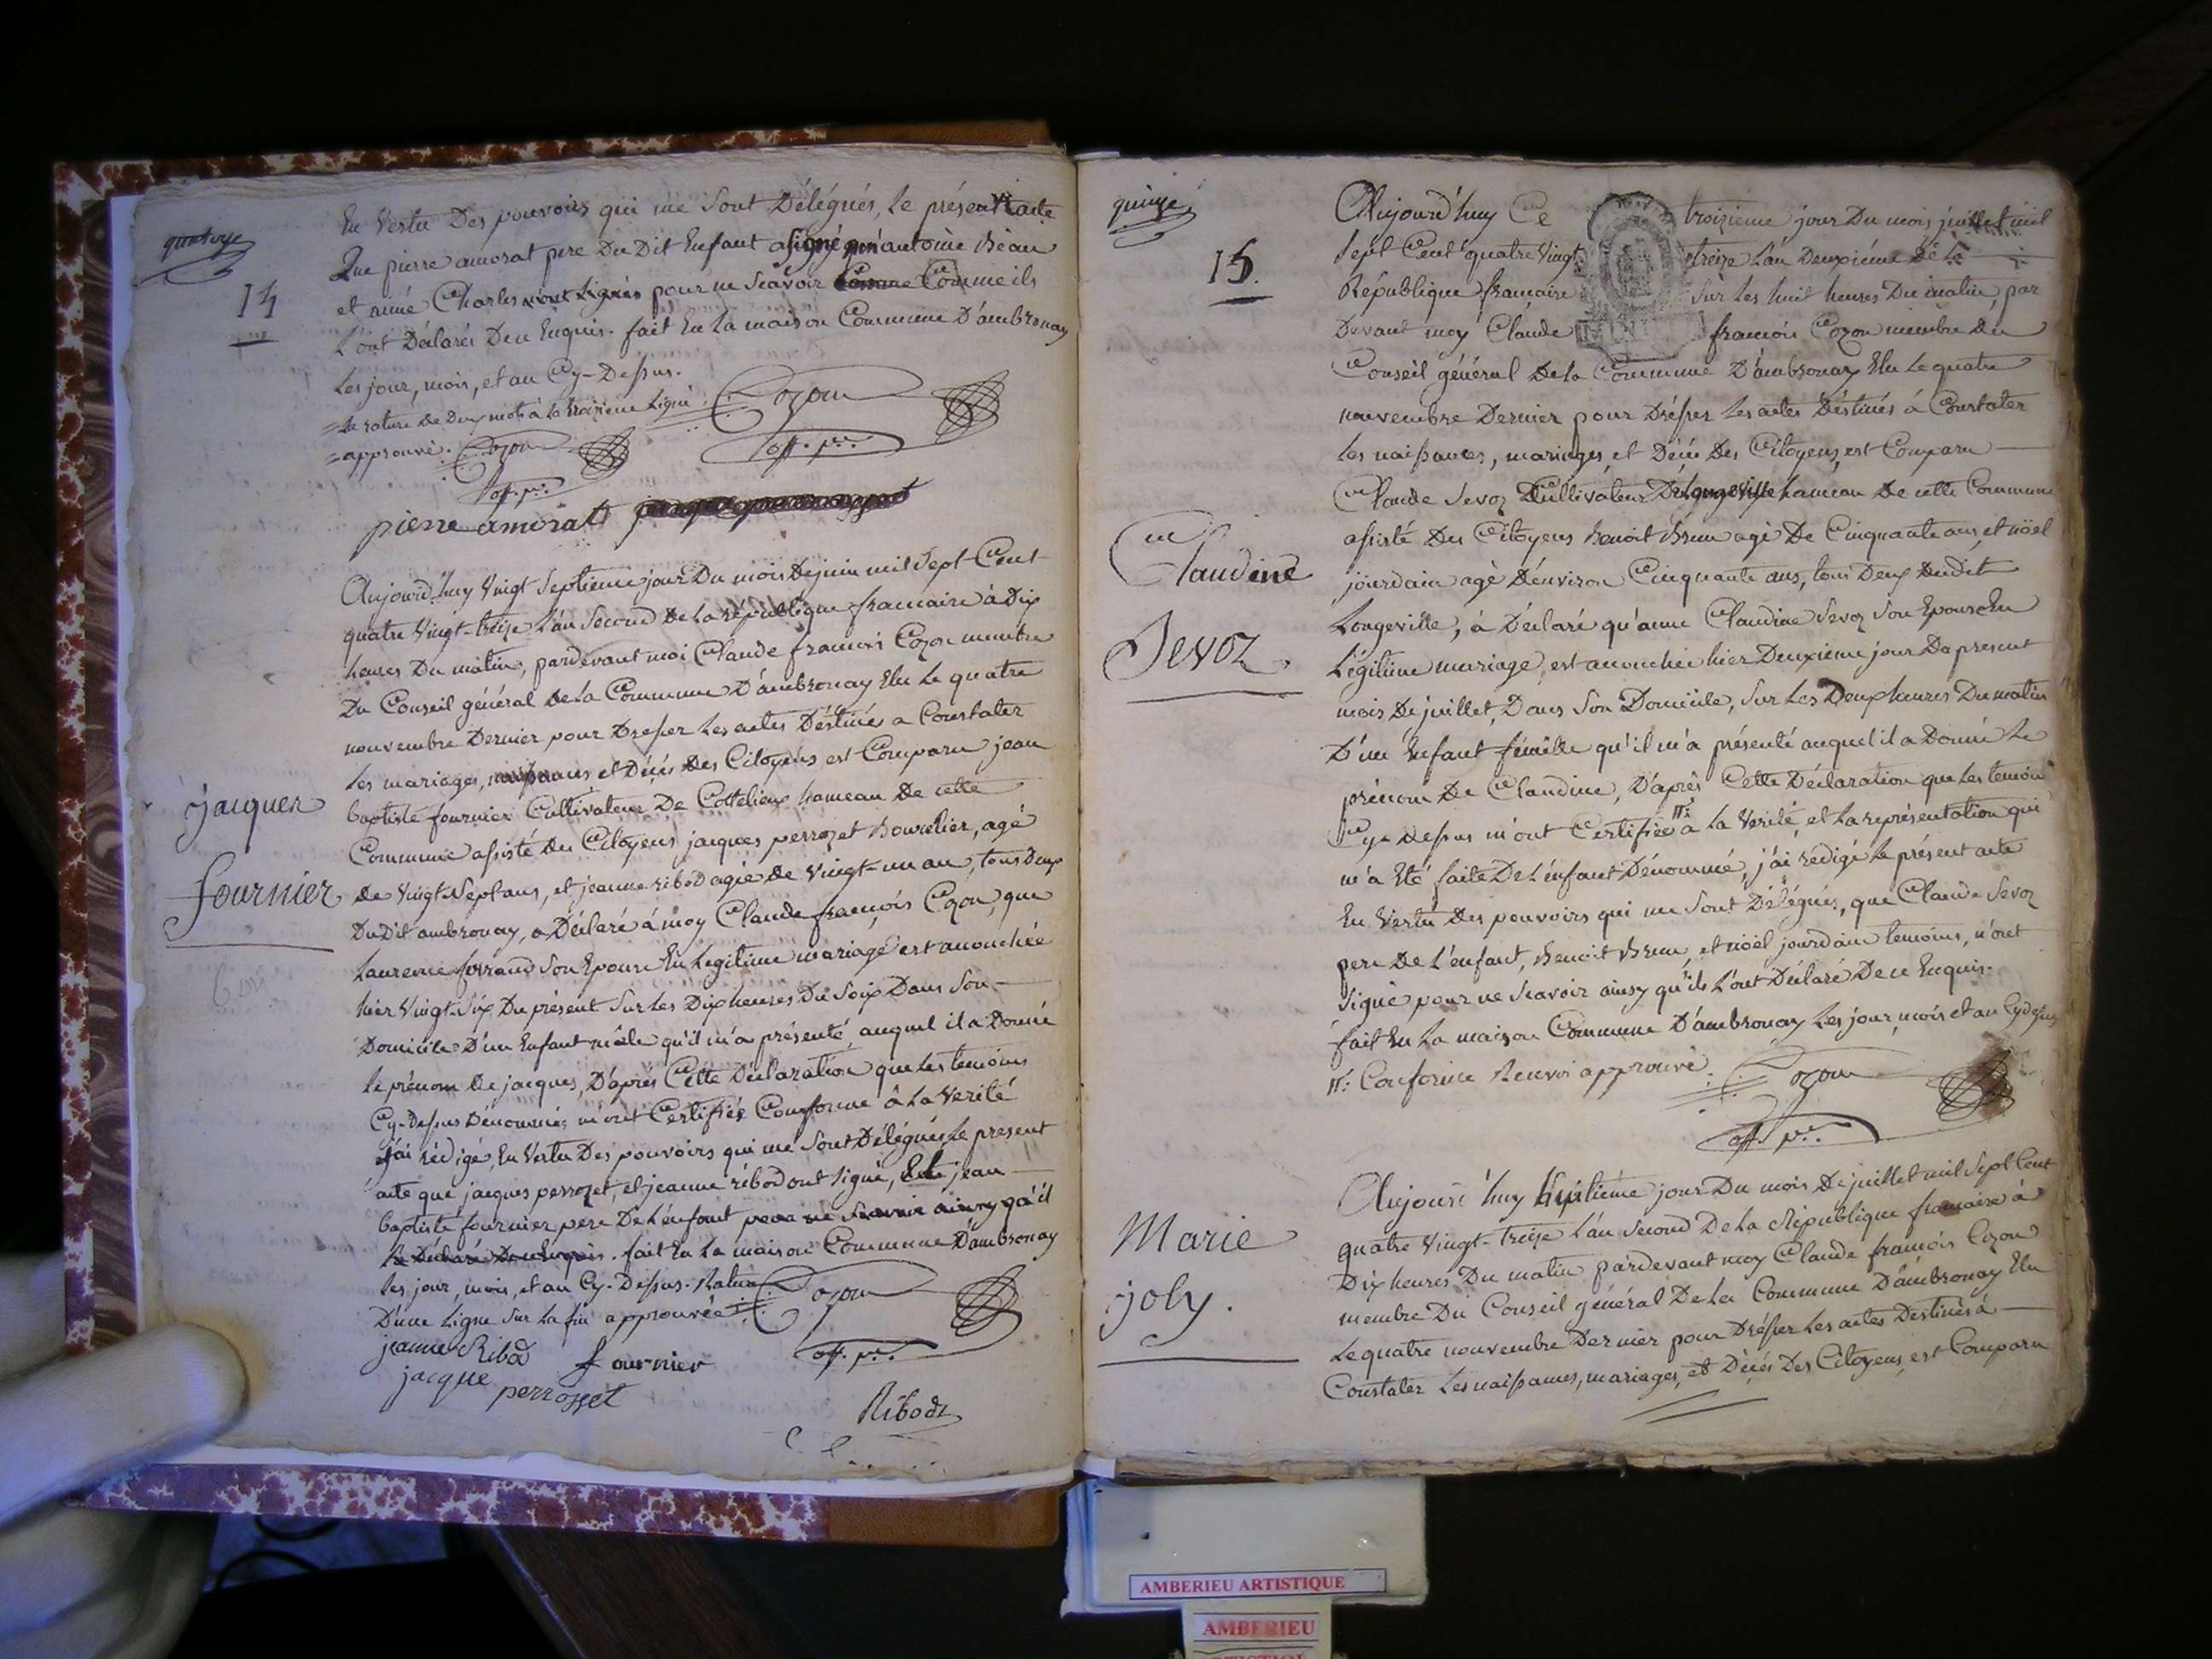 quatorze
14
En Vertu Des pouvoirs qui me sont Délégués, le présent acte
Que pierre amorat pere Du Dit Enfant a signé antoine Béau
et aimé Charles pour ne scavoir Comme ils
L'ont Déclarés De ce Enquis. fait En la maison Commune D'ambronay
les jour, mois, et an Cy-Dessus.
la rature de Deux mots à la troizieme Ligne
approuvé. Cozon Cozon
off. pic. off. pic.
pierre amorat
jacques
fournier
Aujourd'huy Vingt Septieme jour Du mois De juin mil Sept Cent
quatre Vingt-treize L'an Second De la république francaise à Dix
heures Du matin, pardevant moi Claude francois Cozon membre
Du Conseil général De la Commune D'ambronay Elu Le quatre
nouvembre Dernier pour Dresser Les actes Déstinés a Constater
Les mariages, naissances, et Décés Des Citoyens est Comparu jean
baptiste fournier Cultivateur De Cottelieux hameau De cette
Commune assisté Des Citoyens jacques perrozet Bourelier, agé
De Vingt-Sept ans, et jeanne ribod agée De Vingt-un an, tous Deux
Du Dit ambronay, a Déclaré á moy Claude francois Cozon, que
Laurence ferrand Son Epouse En Legitime mariage est accouchée
hier Vingt-Six Du présent Sur Les Dix heures Du Soir Dans Son
Domicile D'un Enfant mâle qu'il m'a présenté, auquel il a Donné
le prénom De jacques, D'aprés Cette Déclaration que Les temoins
Cy-Dessus Dénommés m'ont Certifiés Conforme â La Verité
j'ai rédigé, En Vertu Des pouvoirs qui me Sont Délégués, Le present
acte que jacques perrozet, et jeanne ribod ont Signé, Et jean
baptiste fournier pere De L'enfant pour ne Scavoir ainsy qu'il
L'a Déclaré De ce Enquis. fait En La maison Commune D'ambronay
les jour, mois, et an Cy-Dessus. Rature
D'une Ligne Sur La fin approuvée Cozon
off. pic.
jeanne Ribod fournier
jacque perrosset
Ribodz
quinze
15.
Aujourd'huy Ce troizieme jour Du mois juillet mil
Sept Cent quatre Vingt treize L'an Deuxiéme De la
République francaise Sur Les huit heures Du matin, par
Devant moy Claude francois Cozon membre Du
Conseil général De La Commune D'ambronay Elu Le quatre
nouvembre Dernier pour Drésser Les actes Déstinés á Constater
les naissances, mariages, et Décés Des Citoyens, est Comparu
Claude Sevoz Cultivateur De Longeville hameau De cette Commune
assisté Des Citoyens Benoit Brun agé De Cinquante ans, et nöel
jourdain agé D'environ Cinquante ans, tous Deux Dudit
Longeville, à Déclaré qu'anne Claudine Sevoz Son Epouse En
Légitime mariage, est accouchée hier Deuxieme jour Du present
mois De juillet, Dans Son Domicile, Sur Les Deux heures Du matin
D'un Enfant fémelle qu'il m'a présenté auquel il a Donné Le
prénom De Claudine, D'aprés Cette Déclaration que Les temoins
Cy-Dessus m'ont Certifiée à La Verité, et La représentation qui
m'a Eté faite De L'enfant Dénommé, j'ai rédigé Le présent acte
En Vertu Des pouvoirs qui me Sont Délégués, que Claude Sevoz
pere De L'enfant, Benoit Brun, et nöel jourdain temoins, n'ont
Signé pour ne Scavoir ainsy qu'ils L'ont Déclaré De ce Enquis.
fait En La maison Commune D'ambronay Les jour, mois et an Cydessus
Conforme Renvoi approuvé. Cozon
off. pic.
Claudine
Sevoz
Marie
joly.
Aujourd'huy huitieme jour Du mois De juillet mil Sept Cent
quatre Vingt-treize L'an Second De La République francaise à
Dix heures Du matin pardevant moy Claude francois Cozon
membre Du Conseil général De La Commune D'ambronay Elu
Le quatre nouvembre Dernier pour Drésser Les actes Destinés à
Constater Les naissances, mariages, et Décés Des Citoyens, est Comparu
AMBERIEU ARTISTIQUE
AMBERIEU
ARTISTIQUE